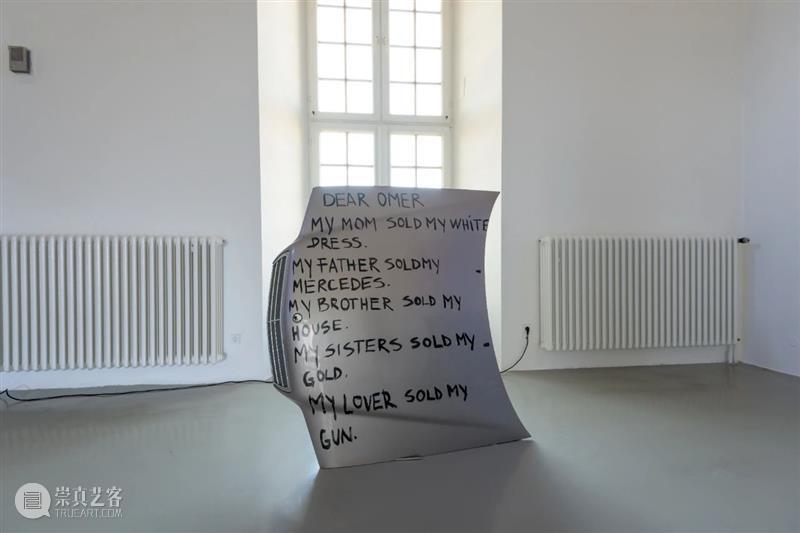 DEAR OMER
MY MOM SOLD MY WHITE
DRESS.
MY FATHER SOLD MY
MERCEDES.
MY BROTHER SOLD MY
HOUSE.
MY SISTERS SOLD MY
GOLD.
MY LOVER SOLD MY
GUN.
崇真艺客
TRUEART.COM